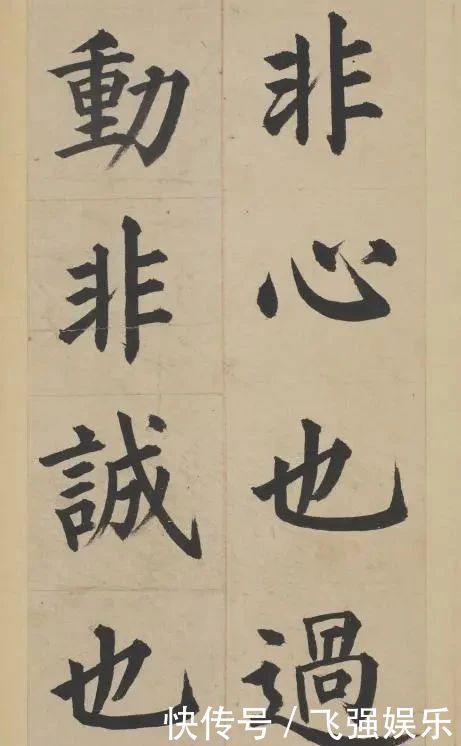 非心也過
動非誠也
快传号/飞强娱乐